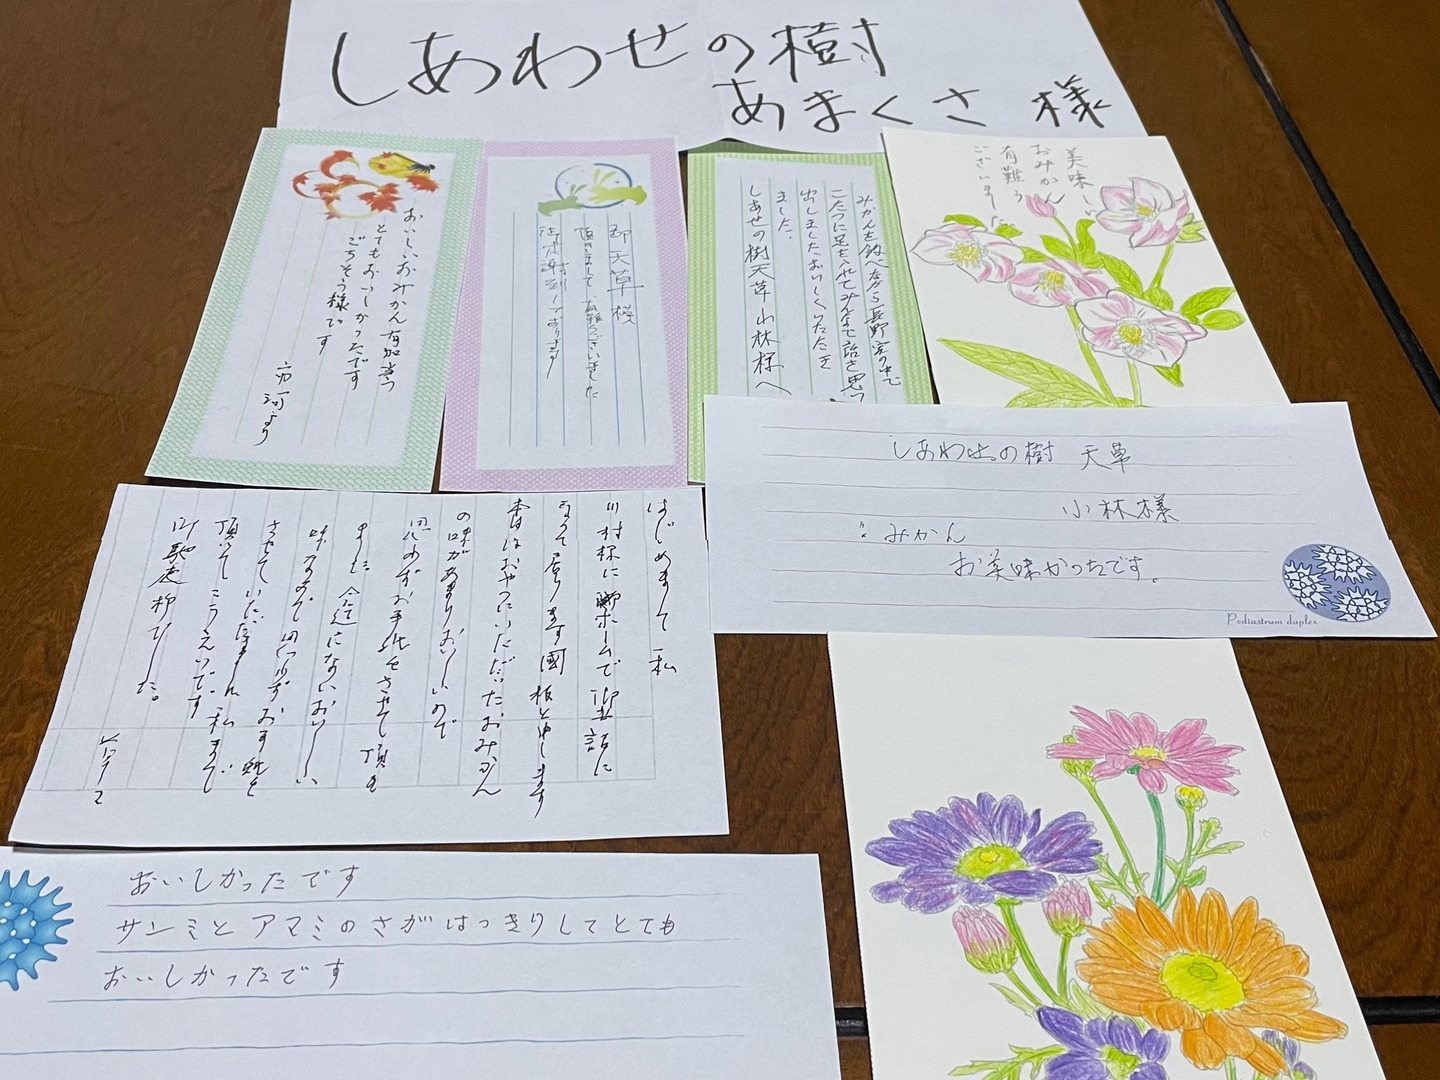 しあわせの樹
あまくさ 様
おいしいおみかん有難う
とてもおいしかったです
ごちそう様です
河より
御天草様
頂きまして有難うございました
みかんを食べながら長野家の中で
こたつに足を入れてみんなで話を思っ
出しました、おいしくいただき
ました。
しあせの樹天草小林様へ
美味しい
おみかん
有難う
ございました
しあわせの樹 天草
小林様
みかん
お美味かったです。
Pediastrum duplex
はじめまして 私
川村様に ホームで御世話に
なって居ります国 板と申します
本日はおやつにいただいたおみかん
の味があまりおいしいので
思わずお手紙をさせて頂き
ました 今迄にないおいしい
味なので思わずお手紙を
させていただきました 私まで
頂いてこうえいです
御馳走様でした。
おいしかったです
サンミとアマミのさがはっきりしてとても
おいしかったです